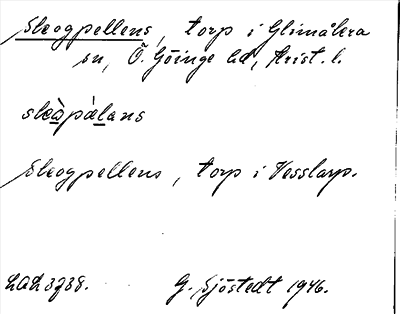 Skogpellens, torp i Glimåkra
sn, Ö. Göinge hd, Krist. l.
skòpälans
Skogpellens, torp i Vesslarp.
G. Sjöstedt 1946.